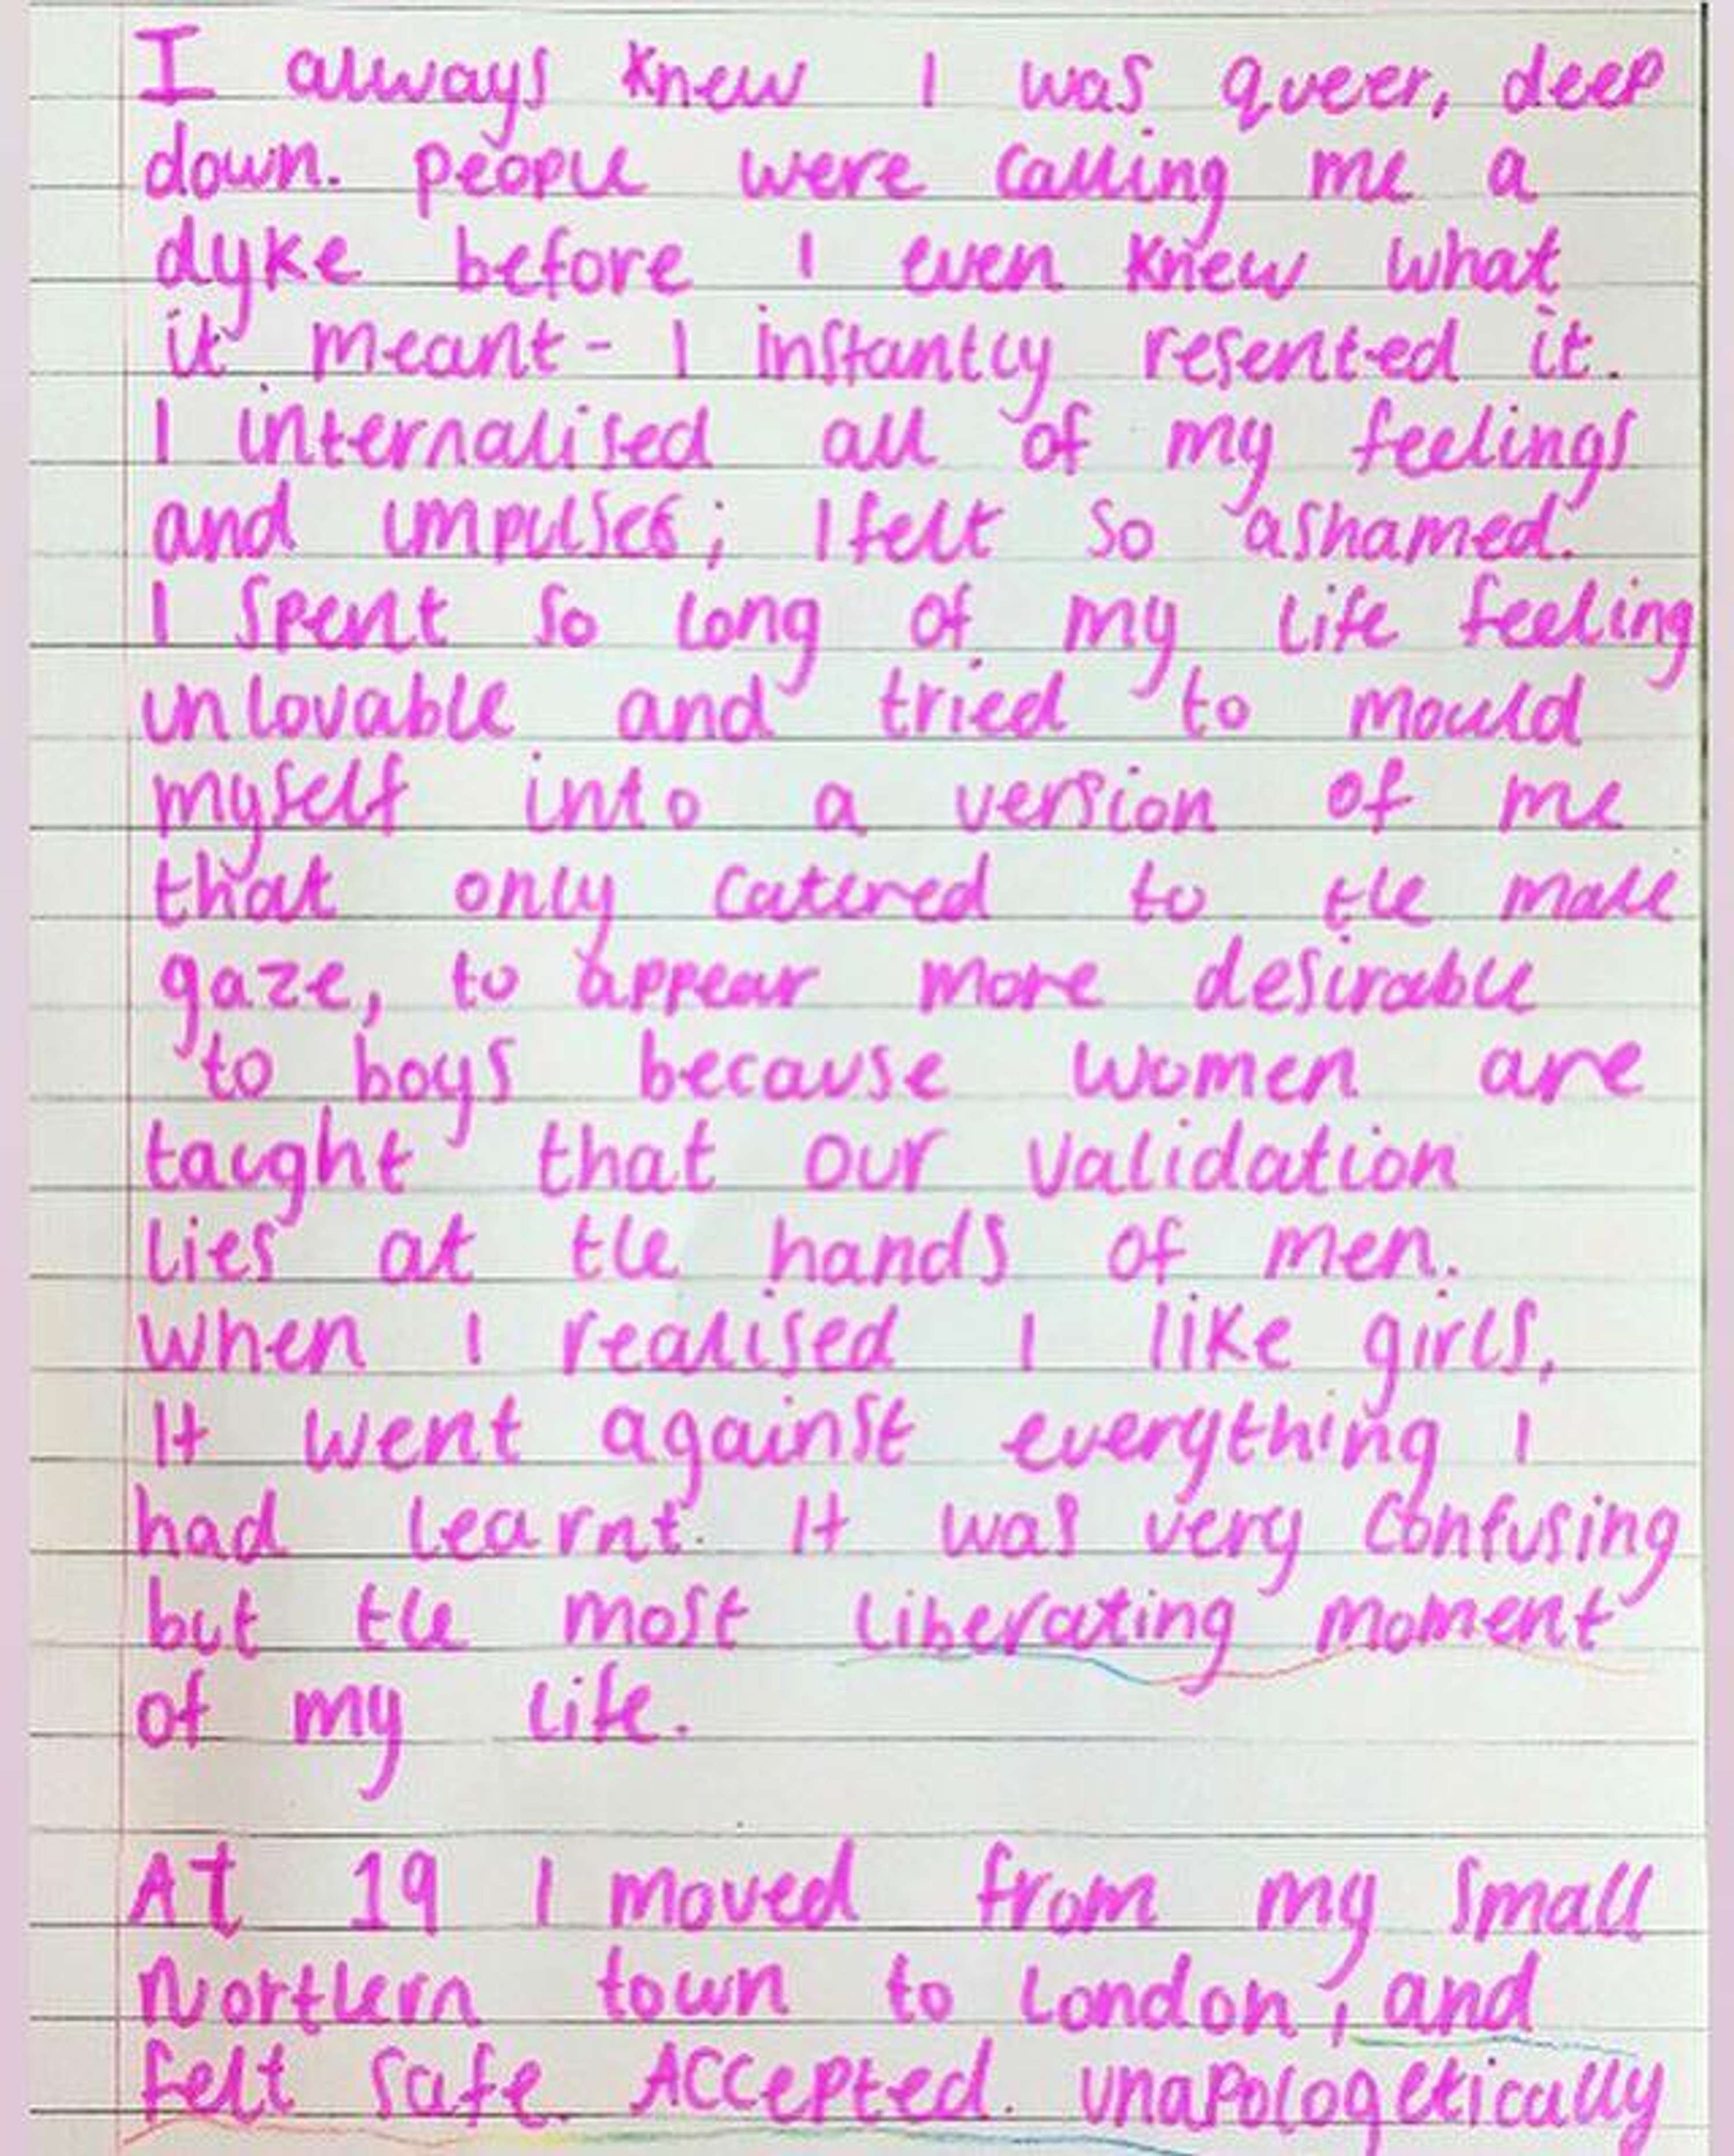 I always knew I was queer, deep
down. people were calling me a
dyke before I even knew what
it meant - I instantly resented it.
I internalised all of my feelings
and impulses; I felt so ashamed.
I spent so long of my life feeling
unlovable and tried to mould
myself into a version of me
that only catered to the male
gaze, to appear more desirable
to boys because women are
taught that our validation
lies at the hands of men.
When I realised I like girls,
It went against everything I
had learnt. It was very confusing
but the most liberating moment
of my life.
At 19 I moved from my small
Northern town to London, and
felt safe. Accepted. unapologetically